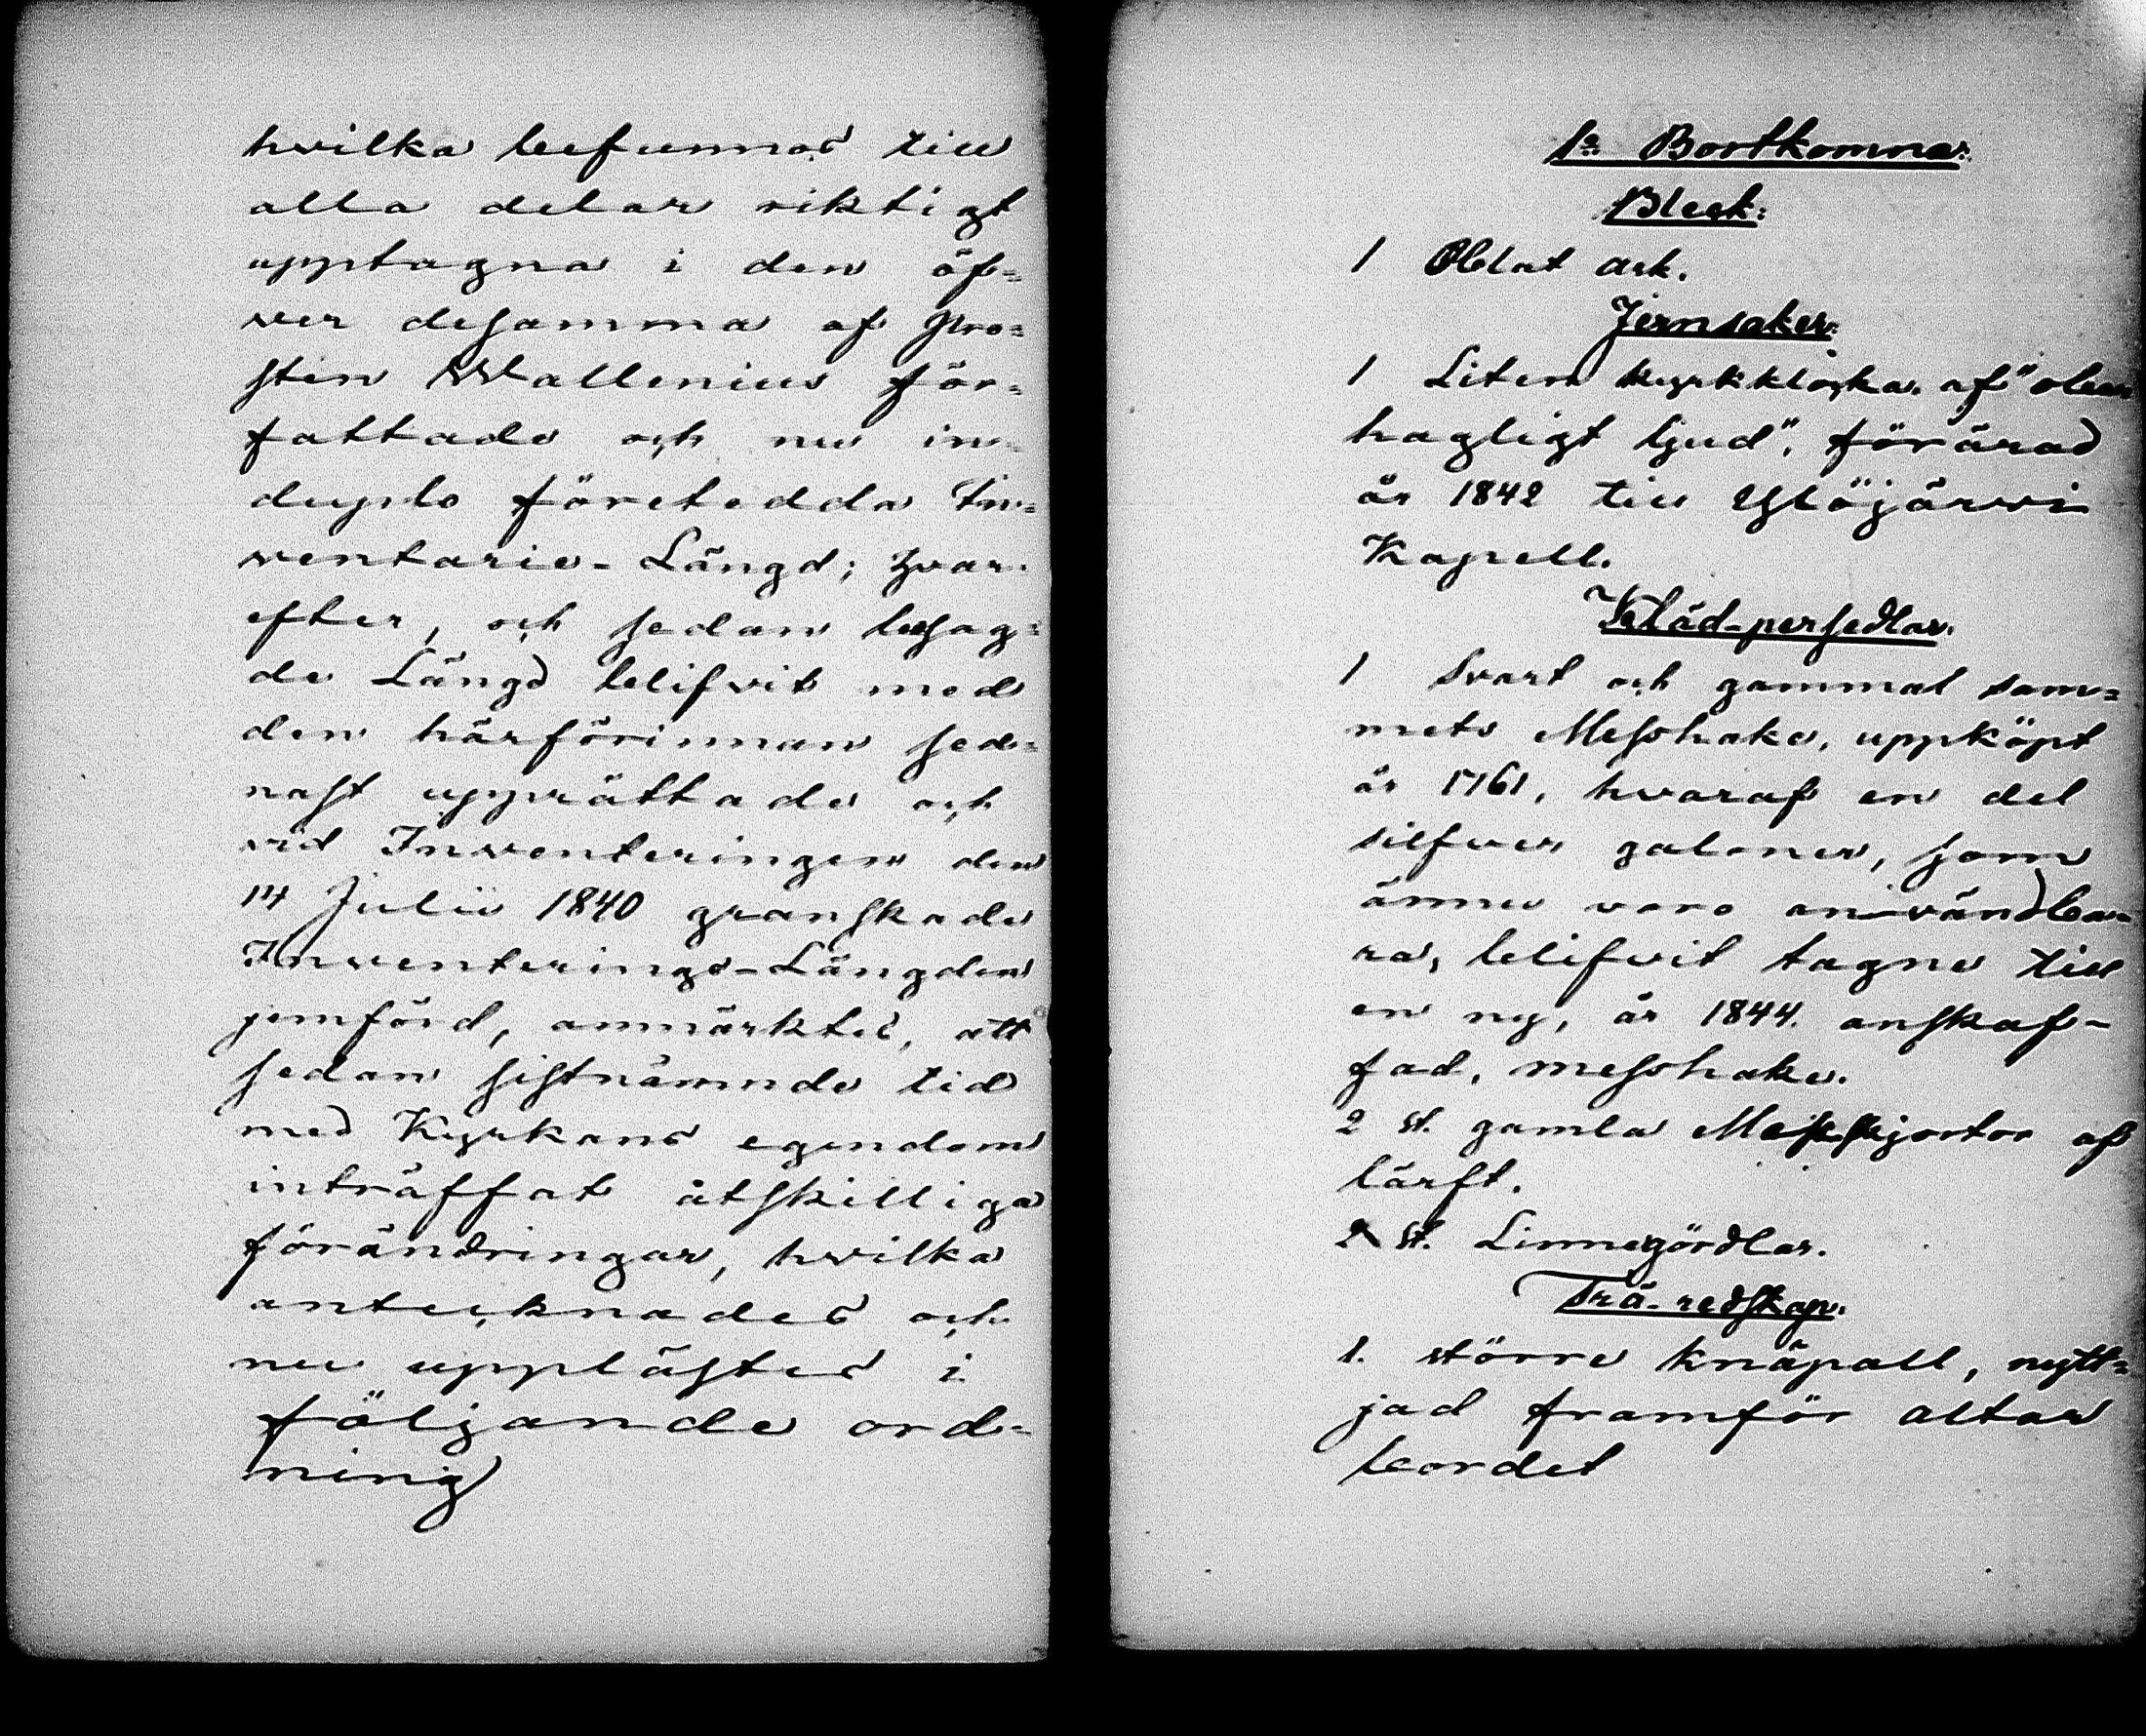 hvilka befunnos till
alla delar riktigt
upptagna i den öf=
ver desamma af Pro=
sten Wallenius för=
fattade och nu in
duplo företedda In=
ventarie-Längd; hvar
efter, och sedan besag=
de Längd blifvit med
den härförinnan sed=
nast upprättade och
vid Inventeringen den
14 Julii 1840 granskade
Inventerings-Längden
jemförd, anmärktes, att
sedan sistnämnde tid
med Kyrkans egendom
inträffat åtskilliga
förändringar, hvilka
antecknades och
nu upplästes i
följande ord=
ning
1o Bortkomna:
Bleck:
1 Oblat ask.
Jernsaker:
1 Liten kyrkklocka af "obe
hagligt ljud", förärad
år 1842 till Ylöjärvi
Kapell.
Kläd-persedlar.
1 Svart och gammal sam=
mets Messhake, uppköpt
år 1761, hvaraf en del
silfver galoner, som
ännu voro användba=
ra, blifvit tagne till
en ny, år 1844 anskaf-
fad, messhake.
2 st. gamla Messskjortor af
lärft.
2 st. Linnegördlar.
Trä-redskap.
1. större knäpall, nytt=
jad framför altar
bordet